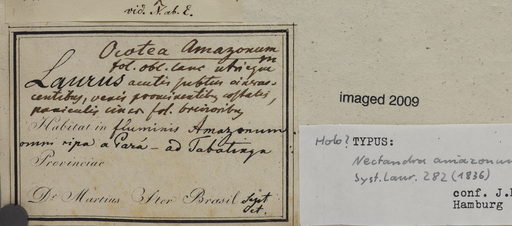 vid. N. ab. E.
Ocotea Amazonum
fol. obl. lanc utrinque
Laurus acutis subtus cinras-
centibus, venis prominentibus costatis,
paniculis circa fol. brevioribus
Habitat in fluminis Amazonum
omni ripa a Para - ad Tabatinga
Provinciae
Dr Martius Iter Brasil Sept
Oct.
imaged 2009
Holo? TYPUS:
Nectandra amazonum
Syst. Laur. 282 (1836)
conf. J.
Hamburg